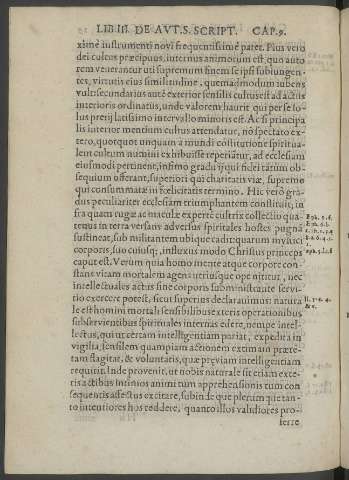 LIB III. DE AVT. S. SCRIPT. CAP. 9.
xime instrumenti novi frequentissime patet. Pius vero
dei cultus præcipuus, internus animorum est quo auto
rem venerantur uti supremum finem se ipsi subiungen-
tes, virtutis eius similitudine, quemadmodum iubens
vult secundarius aut exterior sensilis cultus est ad actus
interioris ordinatus, unde valorem haurit qui per se so-
lus precij latissimo intervallo minoris est. Ac si principa
lis interior mentium cultus attendatur, nõ spectato ex-
tero, quotquot unquam à mundi cõstitutione spiritua-
lem cultum numini exhibuisse reperiãtur, ad ecclesiam
eiusmodi pertinent, infimo gradu ij qui fidei tãtum ob-
sequium offerant, superiori qui charitatis viæ, supremo
qui consummatæ in fœlicitatis termino. Hic verò gra-
dus peculiariter ecclesiam triumphantem constituit, in
fra quam rugæ ac maculæ expertè custrix collectio qua-
tenus in terra versans adversus spiritales hostes pugna
sustineat, sub militantem ubique cadit quarum mystici
corporis, suo cuiusque, influxus modo Christus princeps
caput est. Verum quia homo mente atque corpore con-
stans vitam mortalem agens utriusque ope nititur, nec
intellectuales actus sine corporis subministrante servi-
tio exercere potest, sicut superius declaravimus: natura
le est homini mortali sensibilibus exteris operationibus
subservientibus spiritales internas elicere, nempe intel-
lectus, qui ut certam intelligentiam pariat, expedita in
vigilia, sensilem quampiam actionem eximiam præte-
tam flagitat, & voluntatis, quæ præviam intelligentiam
requirit. Inde provenit, ut nobis naturale sit etiam exte-
ris actibus intimos animi tum apprehensionis tum con
sequentis affectus excitare, subinde que plerumque tan-
to intentiores hos reddere, quanto illos validiores pro-
ferre